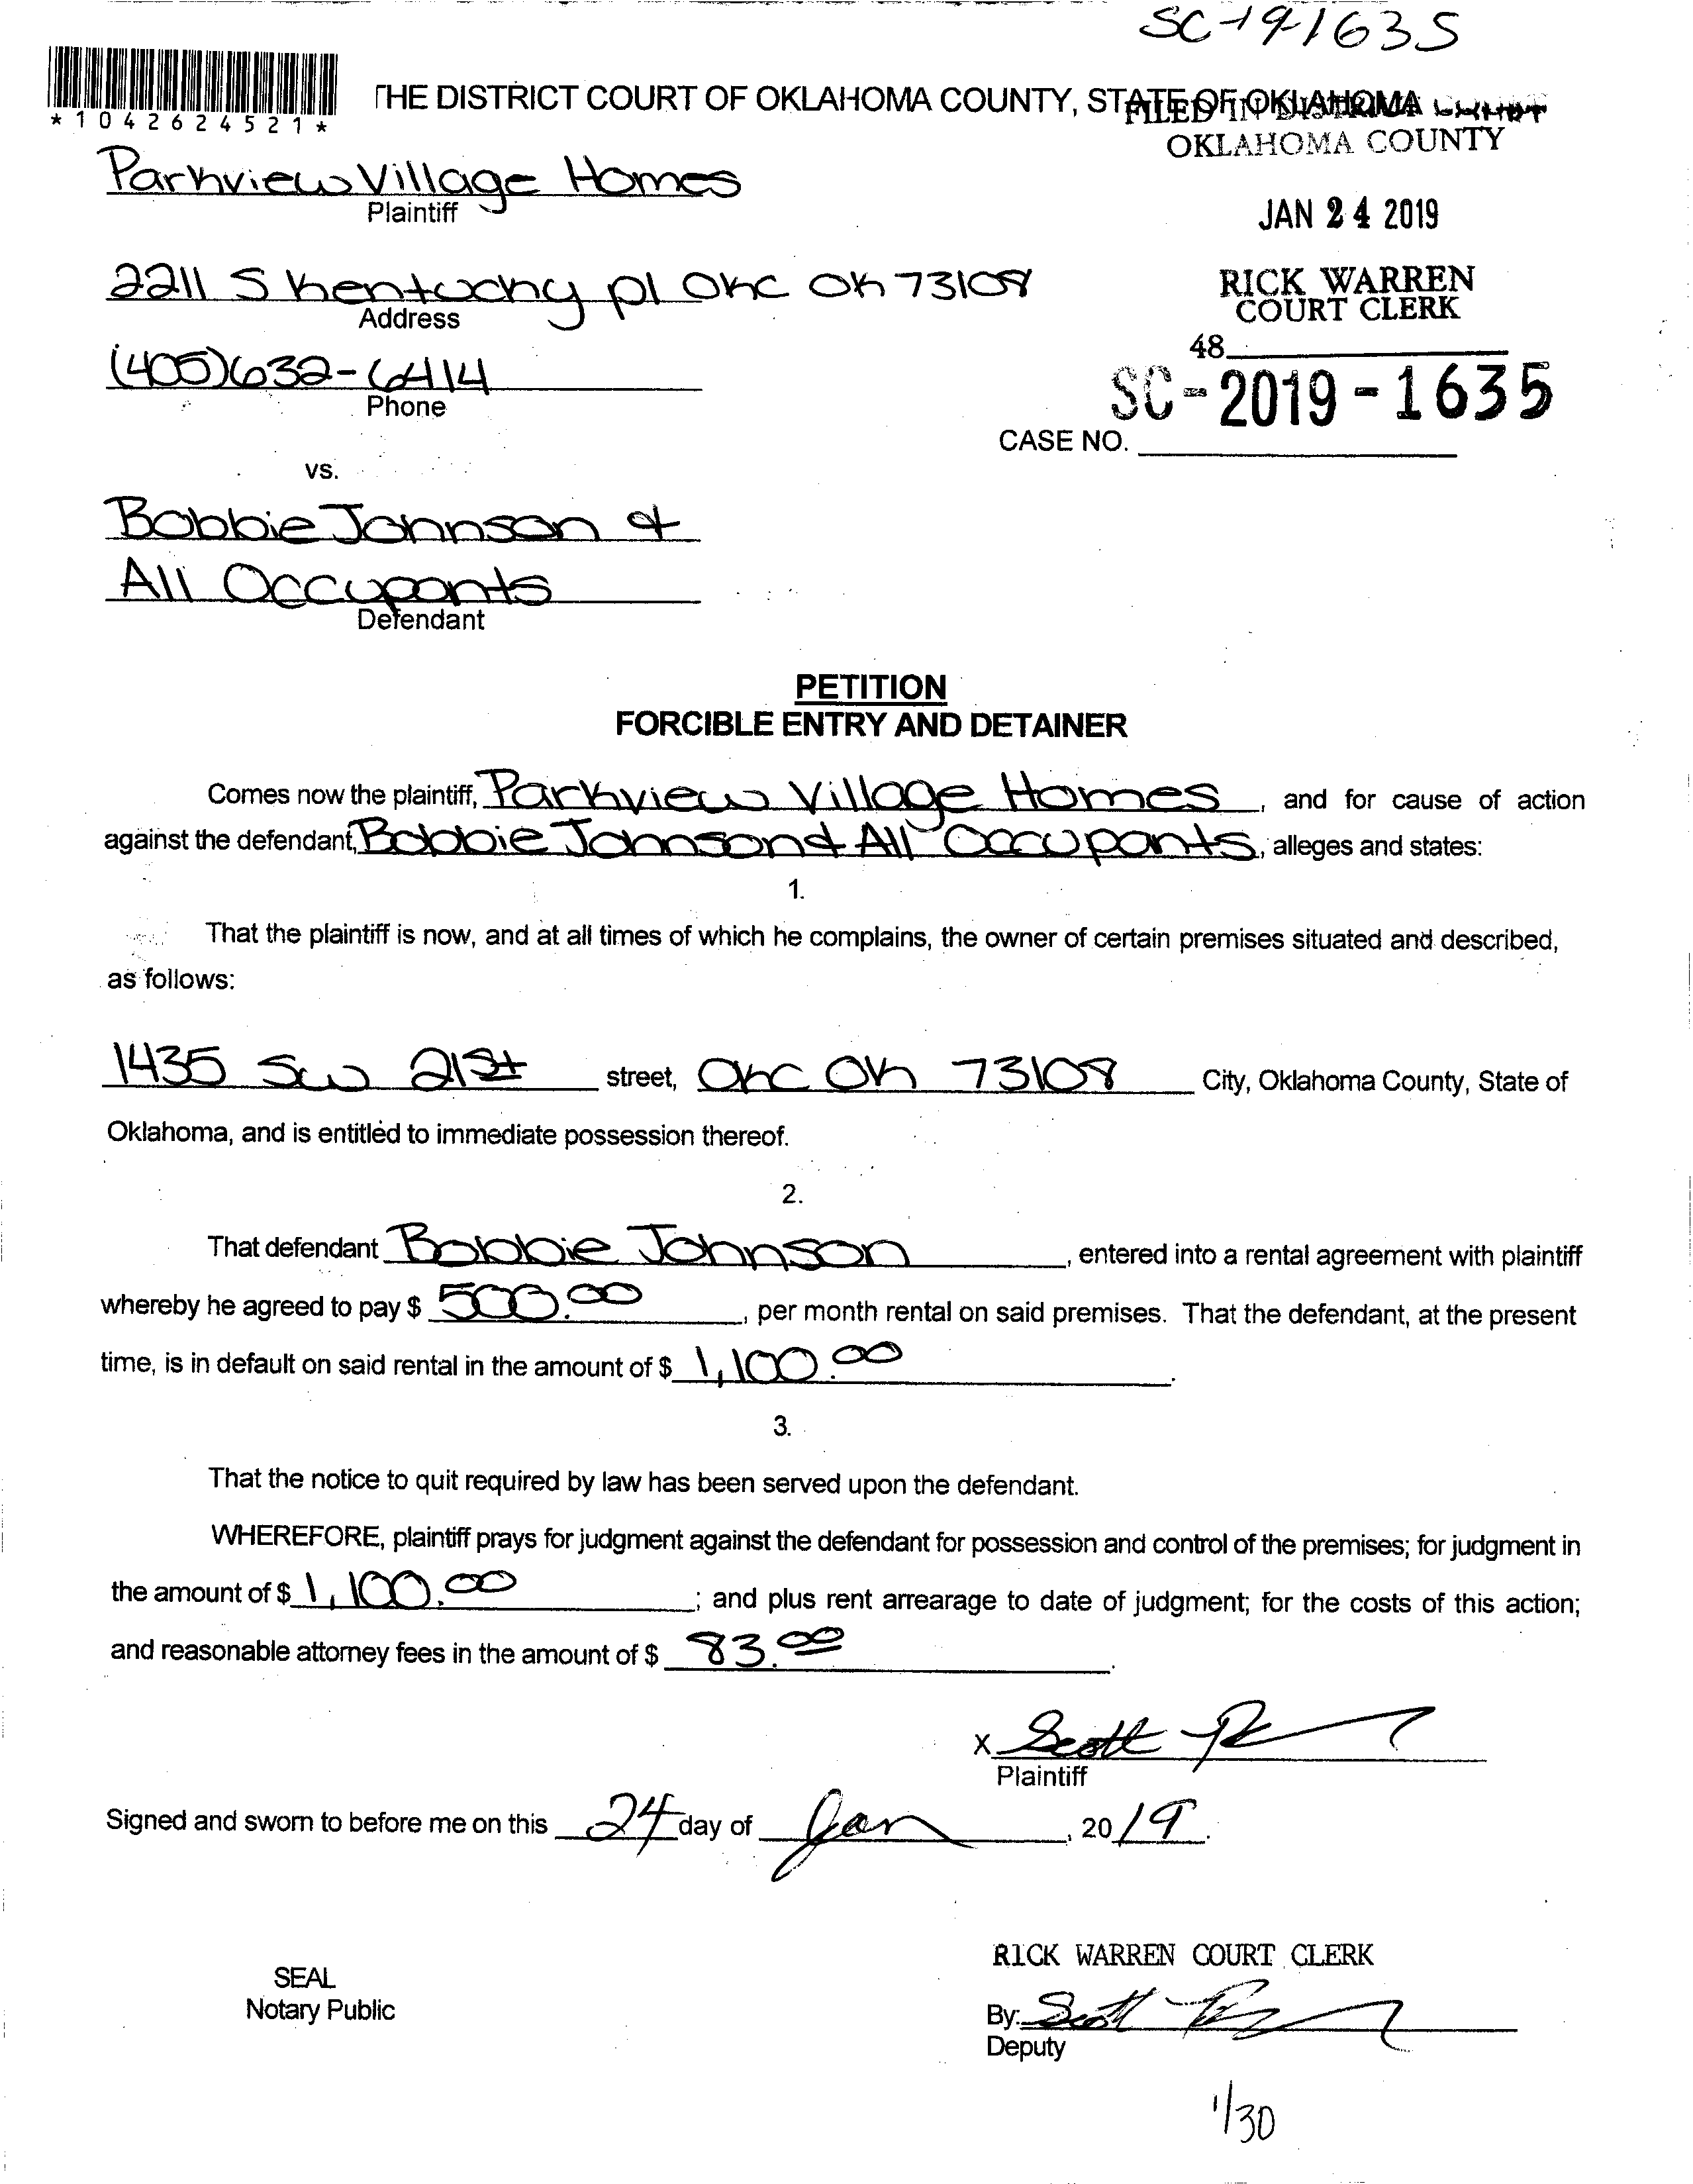 SC-19-1635
*1042624521*
THE DISTRICT COURT OF OKLAHOMA COUNTY, STATE OF OKLAHOMA
FILED IN DISTRICT COURT
OKLAHOMA COUNTY
Parkview Village Homes
Plaintiff
JAN 24 2019
2211 S Kentucky pl OKC OK 73108
Address
RICK WARREN
COURT CLERK
(405)632-6414
Phone
48
SC-2019-1635
CASE NO.
vs.
Bobbie Johnson &
All Occupants
Defendant
PETITION
FORCIBLE ENTRY AND DETAINER
Comes now the plaintiff, Parkview Village Homes, and for cause of action
against the defendant, Bobbie Johnson & All Occupants, alleges and states:
1.
That the plaintiff is now, and at all times of which he complains, the owner of certain premises situated and described,
as follows:
1435 SW 21st street, OKC OK 73108 City, Oklahoma County, State of
Oklahoma, and is entitled to immediate possession thereof.
2.
That defendant Bobbie Johnson, entered into a rental agreement with plaintiff
whereby he agreed to pay $ 500.00, per month rental on said premises. That the defendant, at the present
time, is in default on said rental in the amount of $ 1,100.00.
3.
That the notice to quit required by law has been served upon the defendant.
WHEREFORE, plaintiff prays for judgment against the defendant for possession and control of the premises; for judgment in
the amount of $ 1,100.00; and plus rent arrearage to date of judgment; for the costs of this action;
and reasonable attorney fees in the amount of $ 83.00.
X Scott
Plaintiff
Signed and sworn to before me on this 24 day of Jan, 2019.
RICK WARREN COURT CLERK
SEAL
Notary Public
By: Scott
Deputy
1/30